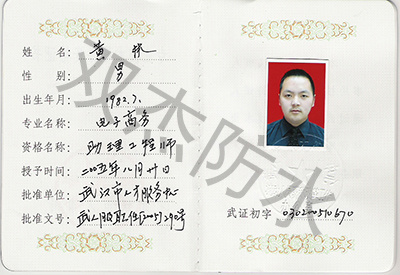 姓名：黄
性别：男
出生年月：1982.7.
专业名称：电子商务
资格名称：助理工程师
授予时间：二00五年八月廿日
批准单位：武汉市人才服务中心
批准文号：武人服职任[2005]290号
武证初字 030200510670
双杰防水